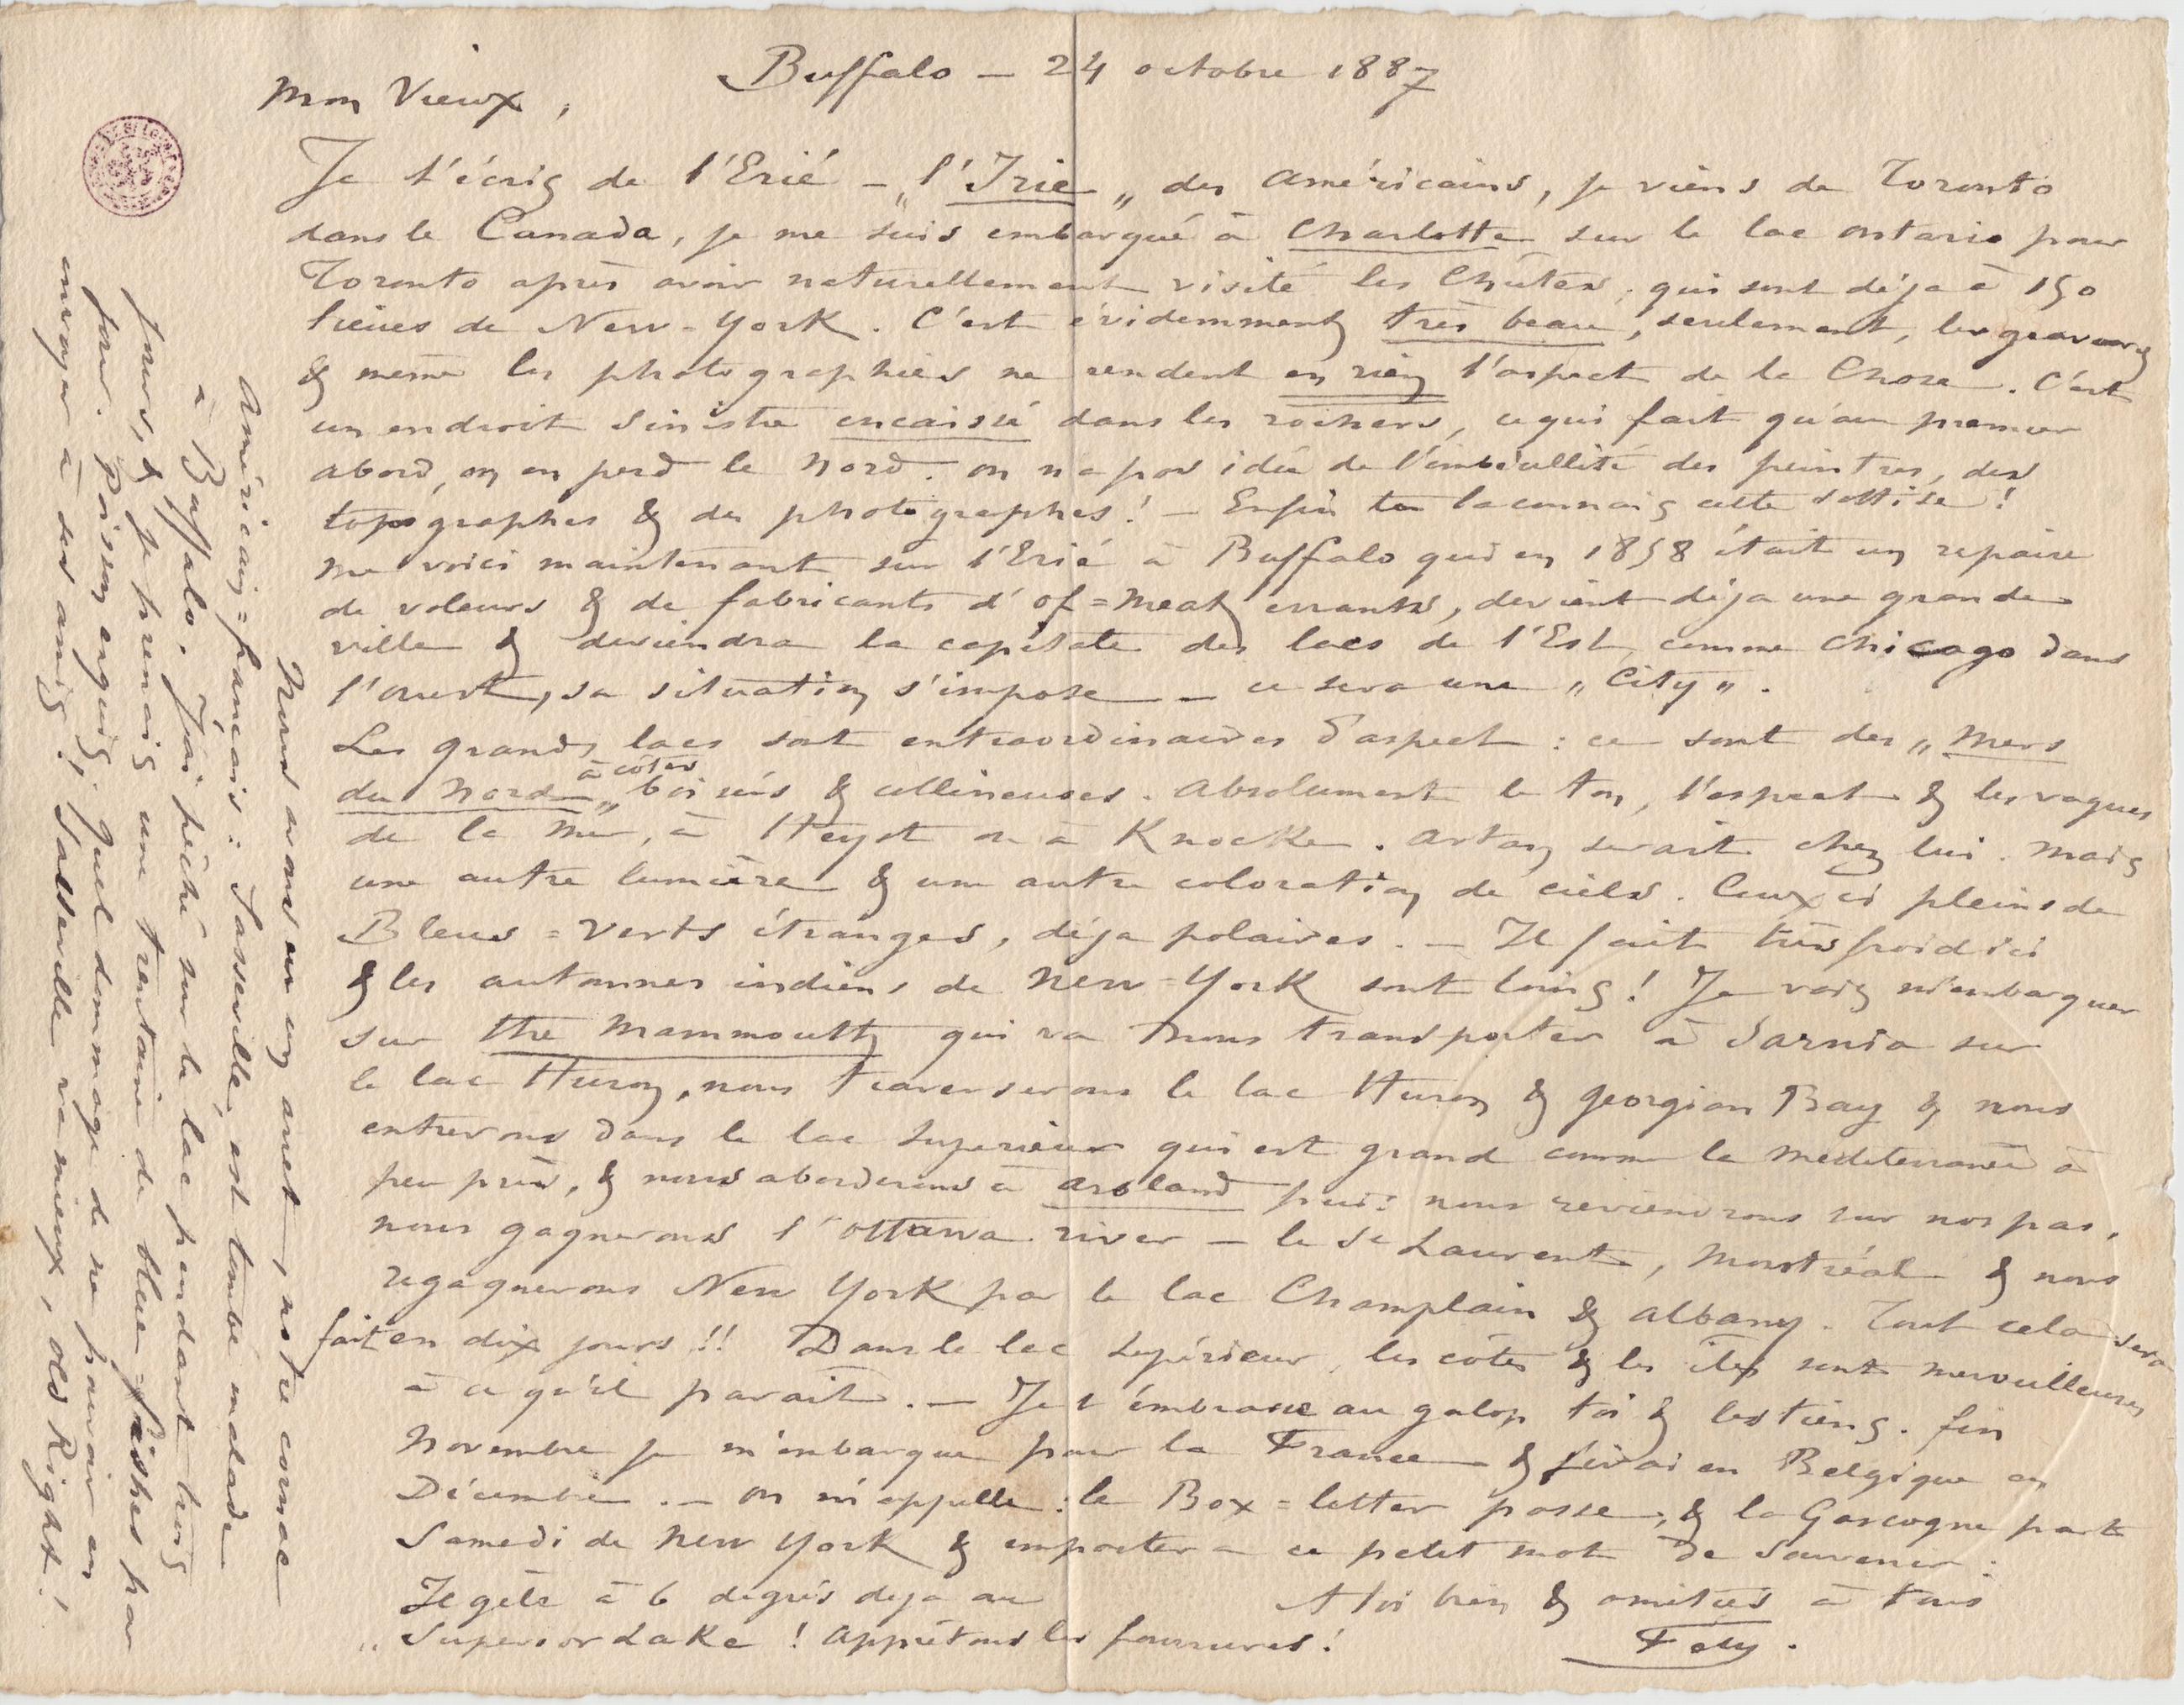 Buffalo — 24 octobre 1887
Mon Vieux,
Je t'écris de l'Erié — „l'Irie„ des américains, je viens de Toronto
dans le Canada, je me suis embarqué à Charlotte sur le lac ontario pour
Toronto après avoir naturellement visité les Chûtes, qui sont déja à 150
lieues de New-York. C'est évidemment très beau, seulement, les gravures
& même les photographies ne rendent en rien l'aspect de la Chose. C'est
un endroit sinistre encaissé dans les rochers, ce qui fait qu'au premier
abord, on en perd le Nord. on n'a pas idée de l'imbécillité des peintres, des
topographes & des photographes! — Enfin tu la connais cette sottise!
me voici maintenant sur l'Erié à Buffalo qui en 1858 était un repaire
de voleurs & de fabricants d'of=meat errants, devient déja une grande
ville & deviendra la capitale des lacs de l'Est comme Chicago dans
l'ouest, sa situation s'impose — ce sera une „City„.
Les grands lacs sont extraordinaires d'aspect : ce sont des „Mers
du Nord„ à côtes boisées & collineuses. Absolument le ton, l'aspect & les vagues
de la mer, à Heyst ou à Knocke. Artan serait chez lui. Mais
une autre lumière & une autre coloration de ciels. Ceux ci pleins de
Bleus = Verts étranges, déja polaires. — Il fait très froid ici
& les automnes indiens de New-York sont loins! Je vais m'embarquer
sur the Mammouth qui va nous transporter à Sarnia sur
le lac Huron, nous traverserons le lac Huron & Georgian Bay & nous
entrerons dans le lac Superieur qui est grand comme la mediterranée à
peu près, & nous aborderons à Arsland puis nous reviendrons sur nos pas,
nous gagnerons l'Ottawa river — le St Laurent, Montréal & nous
regagnerons New York par le lac Champlain & Albany. Tout cela sera
fait en dix jours!! Dans le lac Supérieur, les côtes & les îles sont merveilleuses
à ce qu'il parait. — Je t'embrasse au galop toi & les tiens. fin
Novembre je m'embarque pour la France & j'irai en Belgique en
Décembre. — On m'appelle : le Box=letter passe, & la Gascogne part
Samedi de New York & emportera ce petit mot de souvenir :
A toi bien & amitiés à tous
Fély.
Il gèle à 6 degrés deja au
„Superior Lake! Apprêtons les fourrures!
Nous avons eu un arrêt, notre cornac
Américain=français : Sasserville, est tombé malade
à Buffalo. J'ai pêché sur le lac pendant trois
jours, & je prenais une trentaine de blue-fishes par
jour. Poisson exquis. Quel dommage de ne pouvoir en
envoyer à ses amis! Sasserville va mieux, old Right!,